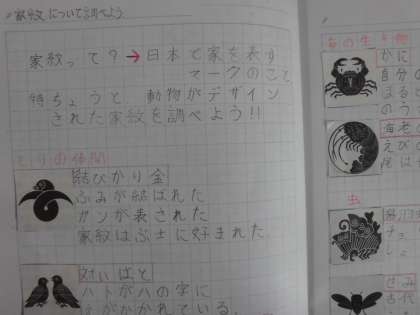 家紋について調べよう
家紋って？→日本で家を表す
マークのこと
特ちょうと 動物がデザイン
された家紋を調べよう!!
とりの仲間
結びかり金
ふみが結ばれた
ガンが表された
家紋はぶしに好まれた
対いばと
ハトがハの字に
えがかれている
海の生き物
かに
自分の
えび
虫
せみ
古代